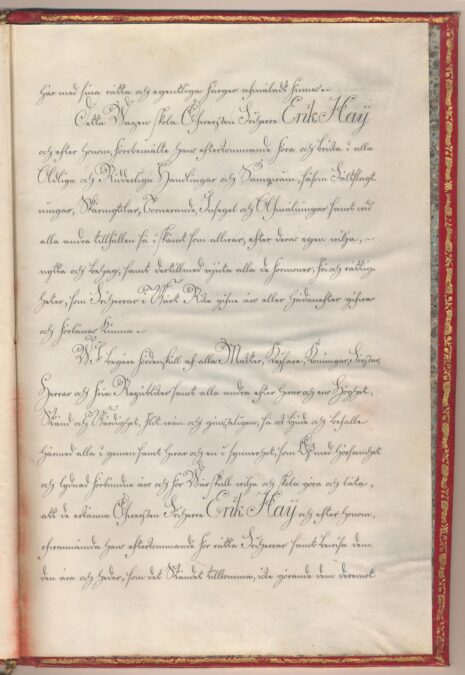 här med sina rätta och egentliga färger afmåladt finnes.
Detta Wapen skola Öfwersten Friherre Erik Haij
och efter honom, förbemälte hans efterkommande föra och bruka i alla
Adeliga och Ridderliga Handlingar och Samqwäm, såsom Fältslagt
ningar, Skärmytslar, Tornerande, Insegel och Afmålningar samt wid
alla andra tillfällen så i Skämt som allwar, efter deras egen wilja,
nytta och behag; samt dertill med njuta alla de förmoner, frij och rättig
heter, som Friherrar i Wårt Rike gifne äro eller hädanefter gifwas
och förlänas kunna.
Wi begäre fördenskull af alla Magter, Kejsare, Konungar, Förstar,
Herrar och fria Republiker samt alla andra efter hwar och ens Höghet,
Stånd och Wärdighet, såt wän och gunsteligen; så ock bjude och befalle
härmed alla i gemen samt hwar och en i synnerhet, som Oss med hörsamhet
och lydnad förbundne äro och för Wår skull wilja och skola göra och låta,
att de erkänna Öfwersten Friherre Erik Haij och efter honom,
ofwannämnde hans efterkommande för rätta Friherrar samt bewisa dem
den äro och heder, som det Ståndet tillkomma, icke görande dem deremot